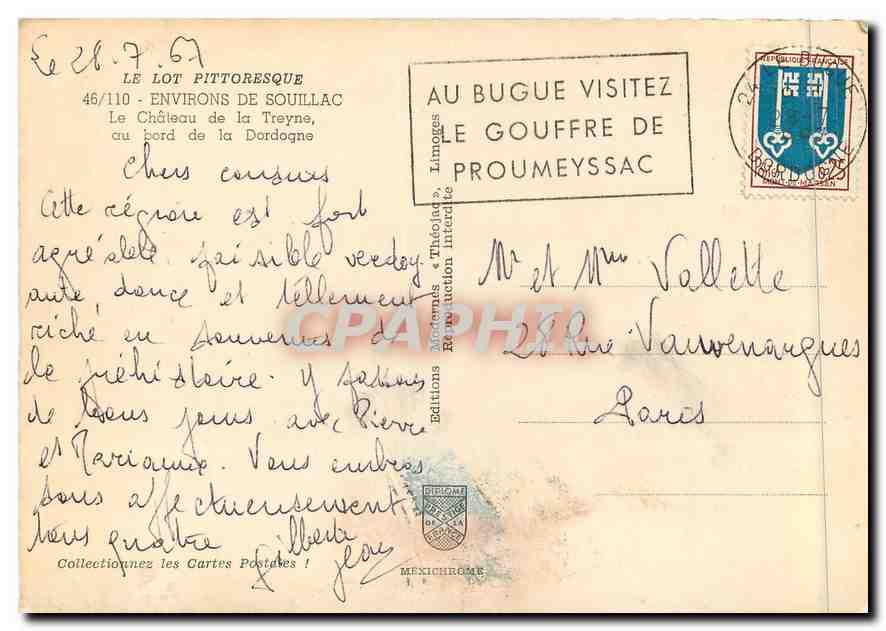 Le 28.7.67
LE LOT PITTORESQUE
46/110 - ENVIRONS DE SOUILLAC
Le Château de la Treyne,
au bord de la Dordogne
Chers cousins
Cette région est fort
agréable paisible verdoy
ante, douce et tellement
riche en souvenirs de
la préhistoire. Y passons
de bons jours avec Pierre
et Marianne. Vous embras
sons affectueusement
tous quatre Gilberte
Jean
Collectionnez les Cartes Postales !
Editions Modernes « Théojac », Limoges
Reproduction Interdite
AU BUGUE VISITEZ
LE GOUFFRE DE
PROUMEYSSAC
REPUBLIQUE FRANÇAISE
MONT-DE-MARSAN
24 LE BUGUE
DORDOGNE
Mr et Mme Vallette
28 Rue Vauvenargues
Paris
DIPLOME
PRESTIGE
DE LA
FRANCE
MEXICHROME
CPAPHIL